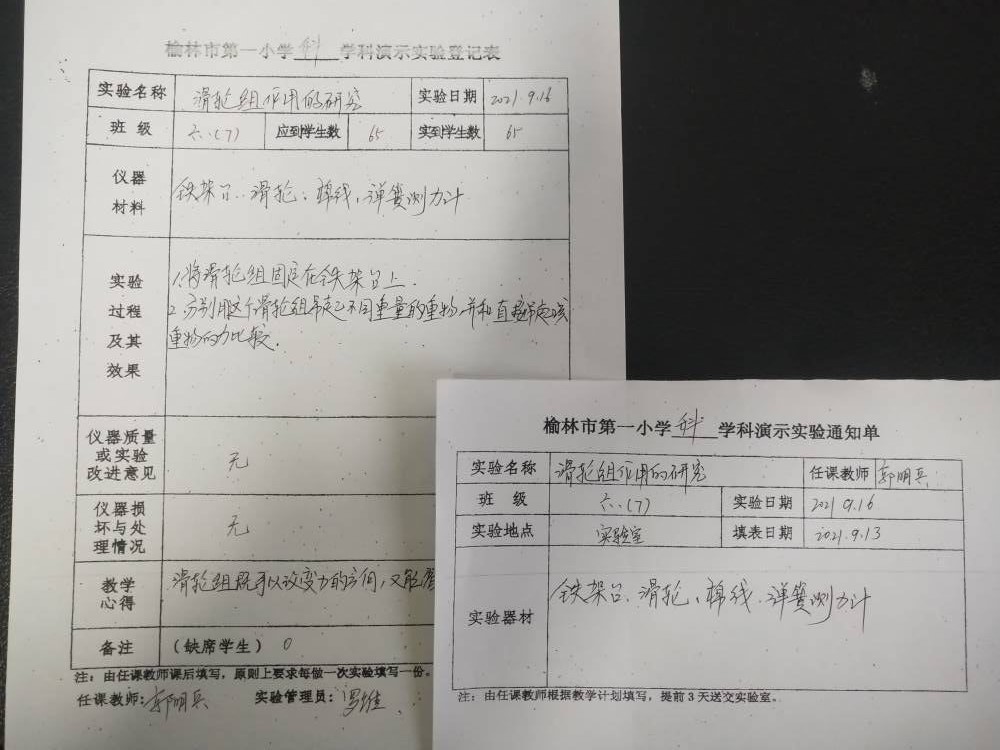 榆林市第一小学 科 学科演示实验登记表
实验名称 滑轮组作用的研究 实验日期 2021.9.16
班 级 六(7) 应到学生数 65 实到学生数 65
仪器
材料
铁架台、滑轮、棉线、弹簧测力计
实验
过程
及其
效果
1、将滑轮组固定在铁架台上.
2、分别用这个滑轮组吊起不同重量的重物,并和直接吊起该
重物的力比较.
仪器质量
或实验
改进意见
无
仪器损
坏与处
理情况
无
教学
心得
滑轮组既可以改变力的方向,又能
备注 (缺席学生) 0
注:由任课教师课后填写,原则上要求每做一次实验填写一份。
任课教师:郭明兵 实验管理员:罗维
榆林市第一小学 科 学科演示实验通知单
实验名称 滑轮组作用的研究 任课教师 郭明兵
班 级 六(7) 实验日期 2021 9.16
实验地点 实验室 填表日期 2021.9.13
实验器材 铁架台、滑轮、棉线、弹簧测力计
注:由任课教师根据教学计划填写,提前3天送交实验室。